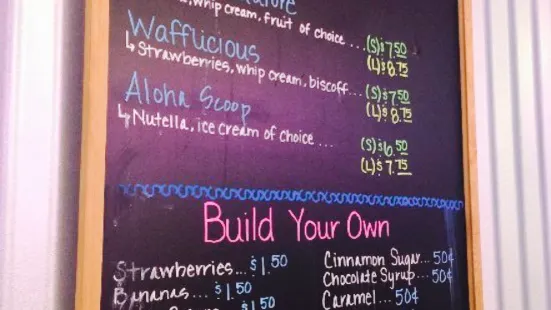 whip cream, fruit of choice ... (S) $7.50
(L) $8.75
Wafflicious
↳ Strawberries, whip cream, biscoff... (S) $7.50
(L) $8.75
Aloha Scoop
↳ Nutella, ice cream of choice ... (S) $6.50
(L) $7.75
Build Your Own
Strawberries... $1.50
Bananas ... $1.50
$1.50
Cinnamon Sugar... 50¢
Chocolate Syrup... 50¢
Caramel ... 50¢